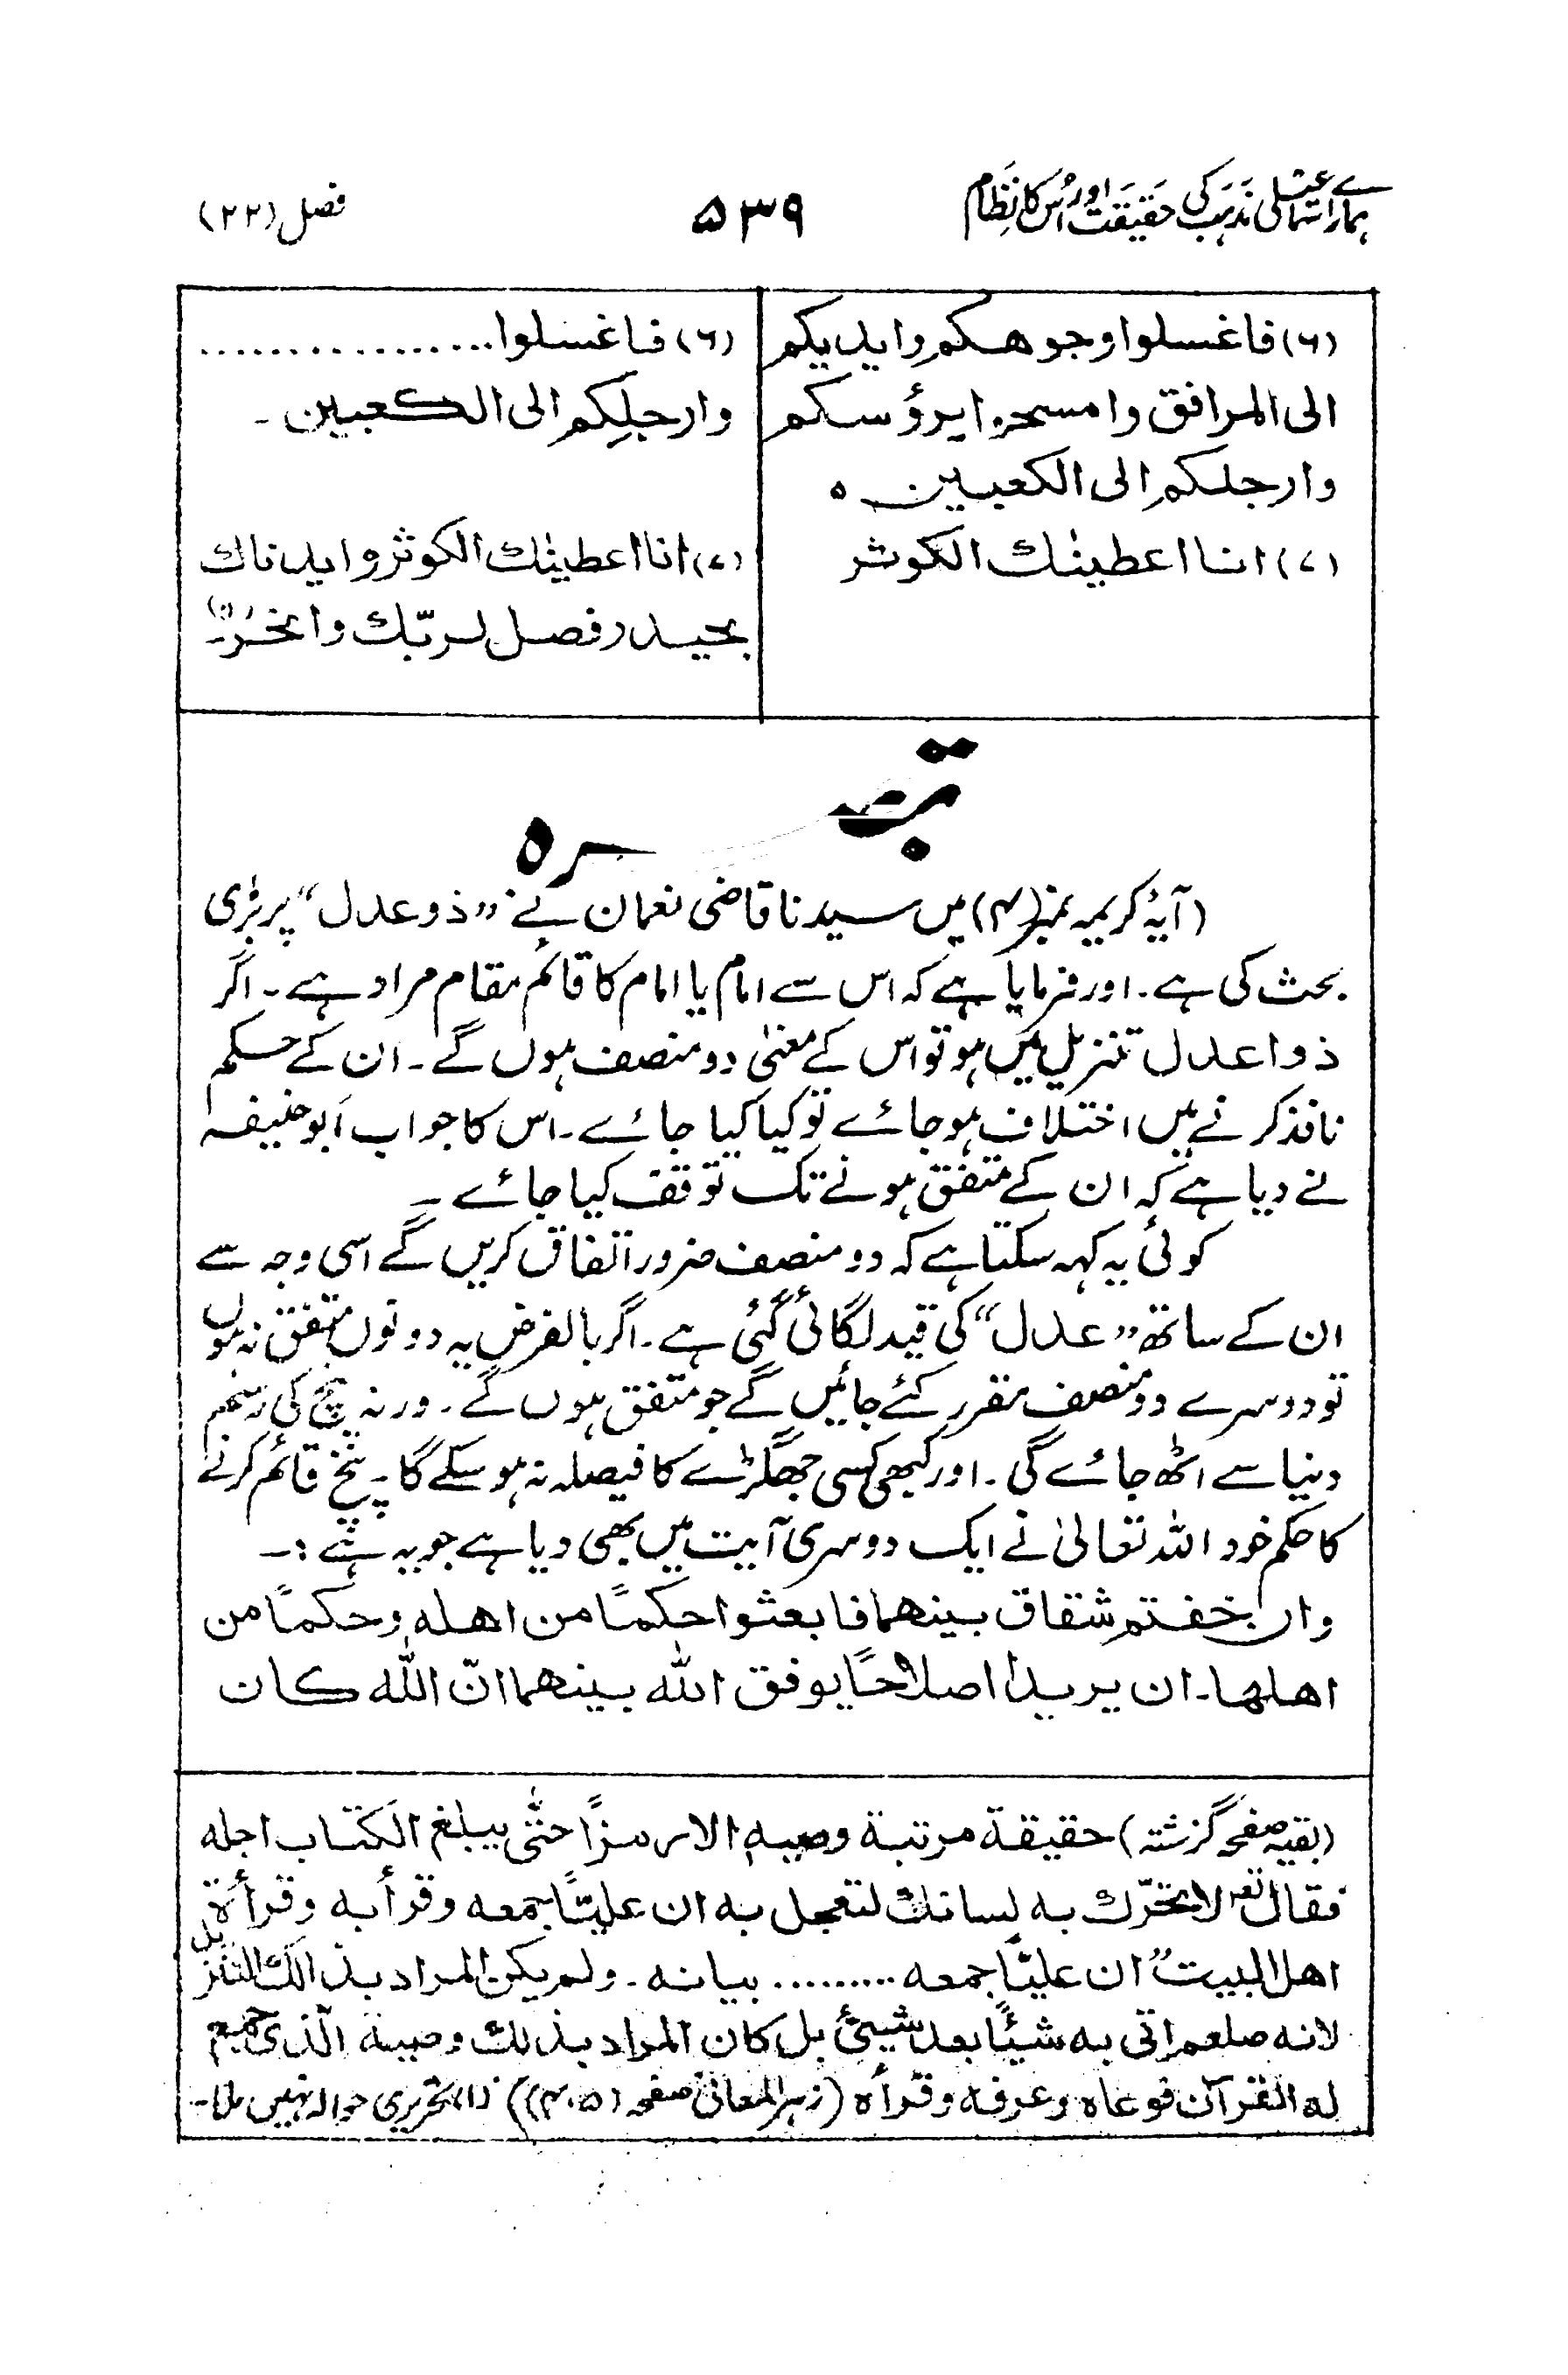 ہمارے اسماعیلی مذہب کی حقیقت اور اُس کا نظام
۵۳۹
فصل (۲۲)
(۶) فاغسلوا وجوهكم وايديكم
الى المرافق وامسحوا برؤسكم
وارجلكم الى الكعبين ہ
(۷) انا اعطينٰك الكوثر
(۶) فاغسلوا................
وارجلِكم الى الكعبين ۔
(۷) انا اعطينٰك الكوثر وايدناك
بحيدر فصل لربّك وانحر (۱)۔
تبصرہ
(آیۂ کریمہ نمبر (۴) میں سیدنا قاضی نعمان نے ”ذو عدل“ پر بڑی
بحث کی ہے ۔ اور فرمایا ہے کہ اس سے امام یا امام کا قائم مقام مراد ہے ۔ اگر
ذوا عدل تنزیل میں ہو تو اس کے معنیٰ دو منصف ہوں گے ۔ ان کے حکم
نافذ کرنے میں اختلاف ہو جائے تو کیا کیا جائے ۔ اس کا جواب ابو حنیفہ
نے دیا ہے کہ ان کے متفق ہونے تک توقف کیا جائے ۔
کوئی یہ کہہ سکتا ہے کہ دو منصف ضرور اتفاق کریں گے اسی وجہ سے
ان کے ساتھ ”عدل“ کی قید لگائی گئی ہے ۔ اگر بالفرض یہ دونوں متفق نہ ہوں
تو دوسرے دو منصف مقرر کئے جائیں گے جو متفق ہوں گے ۔ ورنہ پنچ کی رسم
دنیا سے اٹھ جائے گی ۔ اور کبھی کسی جھگڑے کا فیصلہ نہ ہو سکے گا ۔ پنچ قائم کرنے
کا حکم خود اللہ تعالیٰ نے ایک دوسری آیت میں بھی دیا ہے جو یہ ہے :۔
وان خفتم شقاق بينهما فابعثوا حكمًا من اهله وحكمًا من
اهلها ۔ ان يريدا اصلاحًا يوفق الله بينهما انّ الله كان
(بقیہ صفحہ گزشتہ) حقيقة مرتبة وصيه الا رمزًا حتّٰى يبلغ الكتاب اجله
فقال تعـ لا تحرّك به لسانك لتعجل به ان عليّنا جمعه وقرأ به وقرأة
اهل البيت ”ان عليّا جمعه ......... بيانه ۔ ولم يكن المراد بذالك التنزيل
لانه صلعم اتى به شيئًا بعد شيئ بل كان المراد بذلك وصيه الّذى جمع
له القرآن فوعاه وعرفه وقرأه (زہر المعانی صفحہ (۴۰۵)) (۱) تحریری حوالہ نہیں ملا ۔